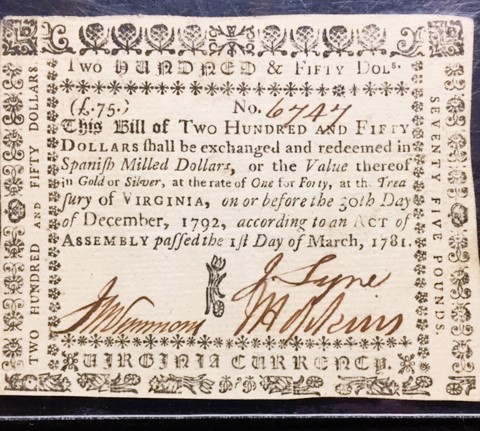 TWO HUNDNED & FIFTY DOLS.
(£.75.) No. 6747
This Bill of TWO HUNDRED AND FIFTY
DOLLARS ſhall be exchanged and redeemed in
Spaniſh Milled Dollars, or the Value thereof
in Gold or Silver, at the rate of One for Forty, at the Trea
ſury of VIRGINIA, on or before the 30th Day
of December, 1792, according to an ACT of
ASSEMBLY paſſed the 1ſt Day of March, 1781.
J. Lyne
J Hopkins
VIRGINIA CURRENCY.
TWO HUNDRED AND FIFTY DOLLARS.
SEVENTY FIVE POUNDS.